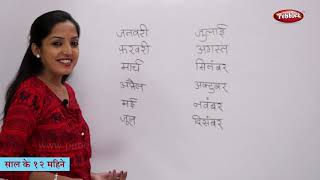 Pebbles
जनवरी
फरवरी
मार्च
अप्रैल
मई
जून
जुलाई
अगस्त
सितंबर
अक्टुबर
नवंबर
दिसंबर
साल के १२ महिने